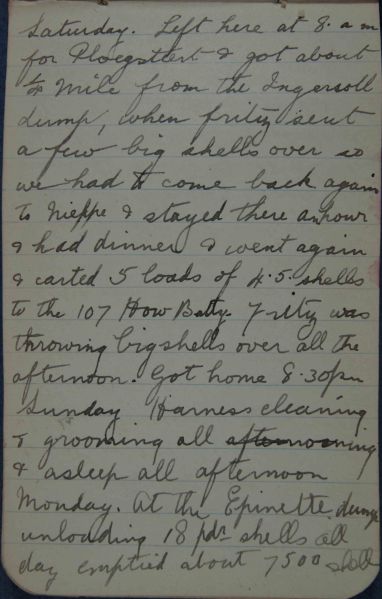 Saturday. Left here at 8. a m
for Ploegstert & got about
¼ Mile from the Ingersoll
dump, when fritz sent
a few big shells over so
we had to come back again
to Nieppe & stayed there an hour
& had dinner & went again
& carted 5 loads of 4.5. shells
to the 107 How Batty. Fritz was
throwing big shells over all the
afternoon. Got home 8.30pm
Sunday Harness cleaning
& grooming all afternoorning
& asleep all afternoon
Monday. At the Epinette dump
unloading 18 pdr shells all
day emptied about 7500 shells